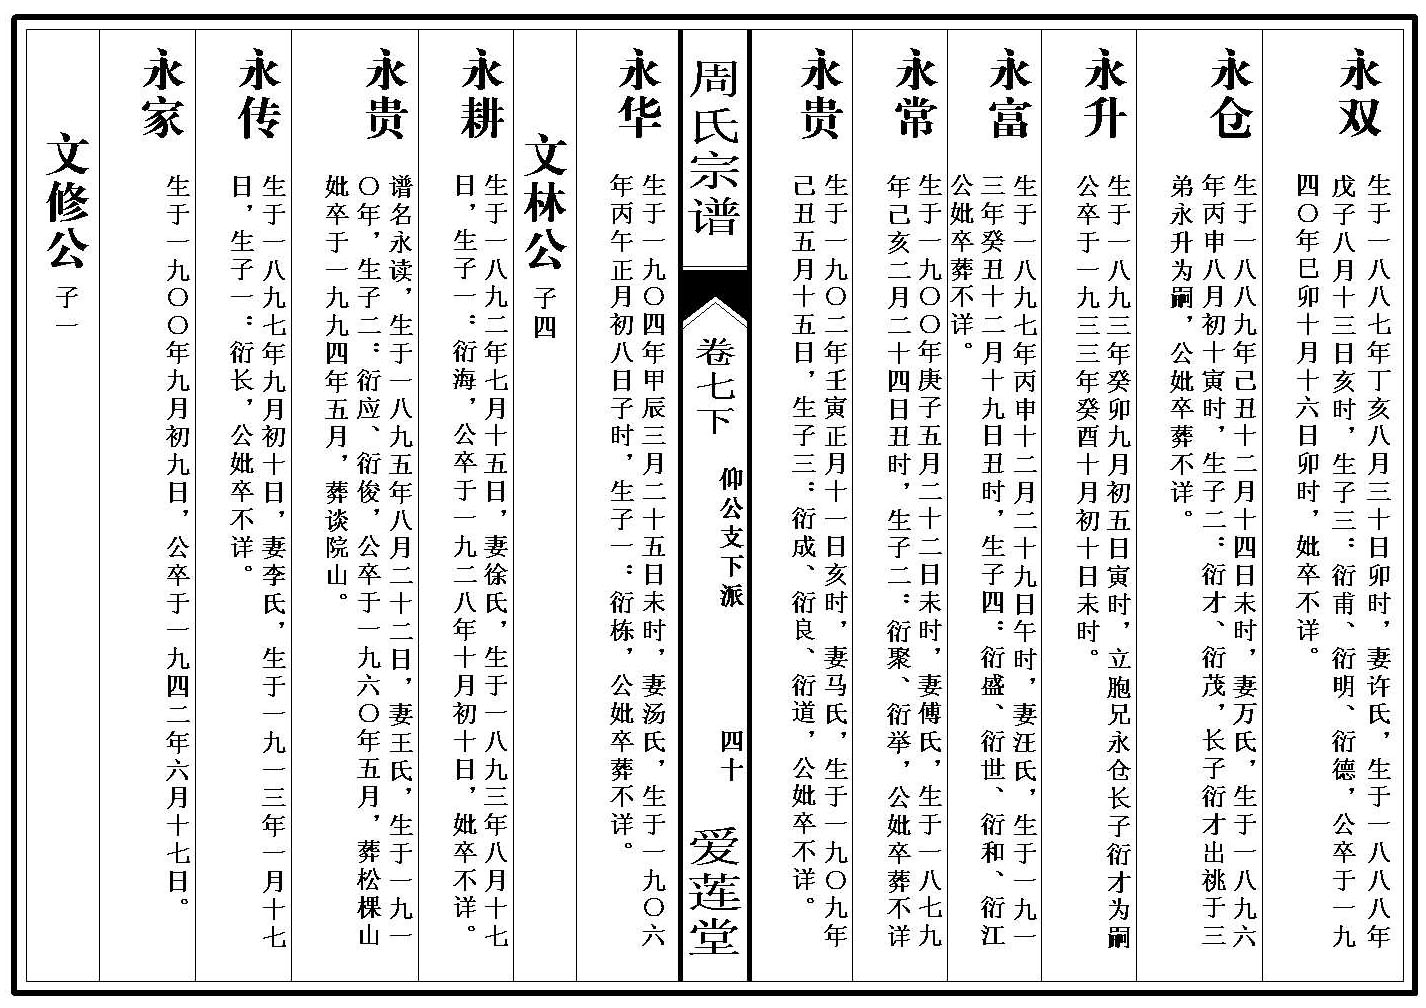 永双
生于一八八七年丁亥八月三十日卯时，妻许氏，生于一八八八年
戊子八月十三日亥时，生子三：衍甫、衍明、衍德，公卒于一九
四〇年巳卯十月十六日卯时，妣卒不详。
永仓
生于一八八九年己丑十二月十四日未时，妻万氏，生于一八九六
年丙申八月初十寅时，生子二：衍才、衍茂，长子衍才出祧于三
弟永升为嗣，公妣卒葬不详。
永升
生于一八九三年癸卯九月初五日寅时，立胞兄永仓长子衍才为嗣
公卒于一九三三年癸酉十月初十日未时。
永富
生于一八九七年丙申十二月二十九日午时，妻汪氏，生于一九一
三年癸丑十二月十九日丑时，生子四：衍盛、衍世、衍和、衍江
公妣卒葬不详。
永常
生于一九〇〇年庚子五月二十二日未时，妻傅氏，生于一八七九
年己亥二月二十四日丑时，生子二：衍聚、衍举，公妣卒葬不详
永贵
生于一九〇二年壬寅正月十一日亥时，妻马氏，生于一九〇九年
己丑五月十五日，生子三：衍成、衍良、衍道，公妣卒不详。
周氏宗谱
卷七下
仰公支下派
四十
爱莲堂
永华
生于一九〇四年甲辰三月二十五日未时，妻汤氏，生于一九〇六
年丙午正月初八日子时，生子一：衍栋，公妣卒葬不详。
文林公 子四
永耕
生于一八九二年七月十五日，妻徐氏，生于一八九三年八月十七
日，生子一：衍海，公卒于一九二八年十月初十日，妣卒不详。
永贵
谱名永读，生于一八九五年八月二十二日，妻王氏，生于一九一
〇年，生子二：衍应、衍俊，公卒于一九六〇年五月，葬松棵山
妣卒于一九九四年五月，葬谈院山。
永传
生于一八九七年九月初十日，妻李氏，生于一九一三年一月十七
日，生子一：衍长，公妣卒不详。
永家
生于一九〇〇年九月初九日，公卒于一九四二年六月十七日。
文修公 子一